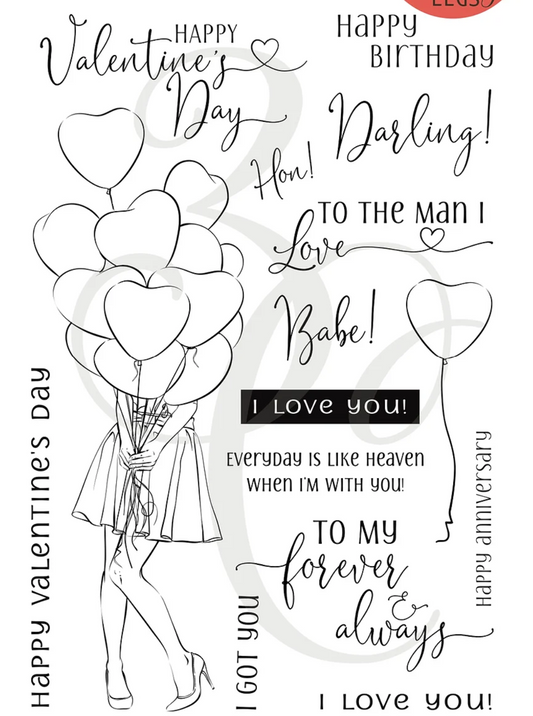 LEGS
HAPPY
Valentine's
Day
HAPPY
BIRTHDAY
Darling!
Hon!
TO THE MAN I
Love
Babe!
I LOVE YOU!
EVERYDAY IS LIKE HEAVEN
WHEN I'M WITH YOU!
TO MY
forever
&
always
I LOVE YOU!
HAPPY VALENTINE'S DAY
I GOT YOU
HAPPY ANNIVERSARY